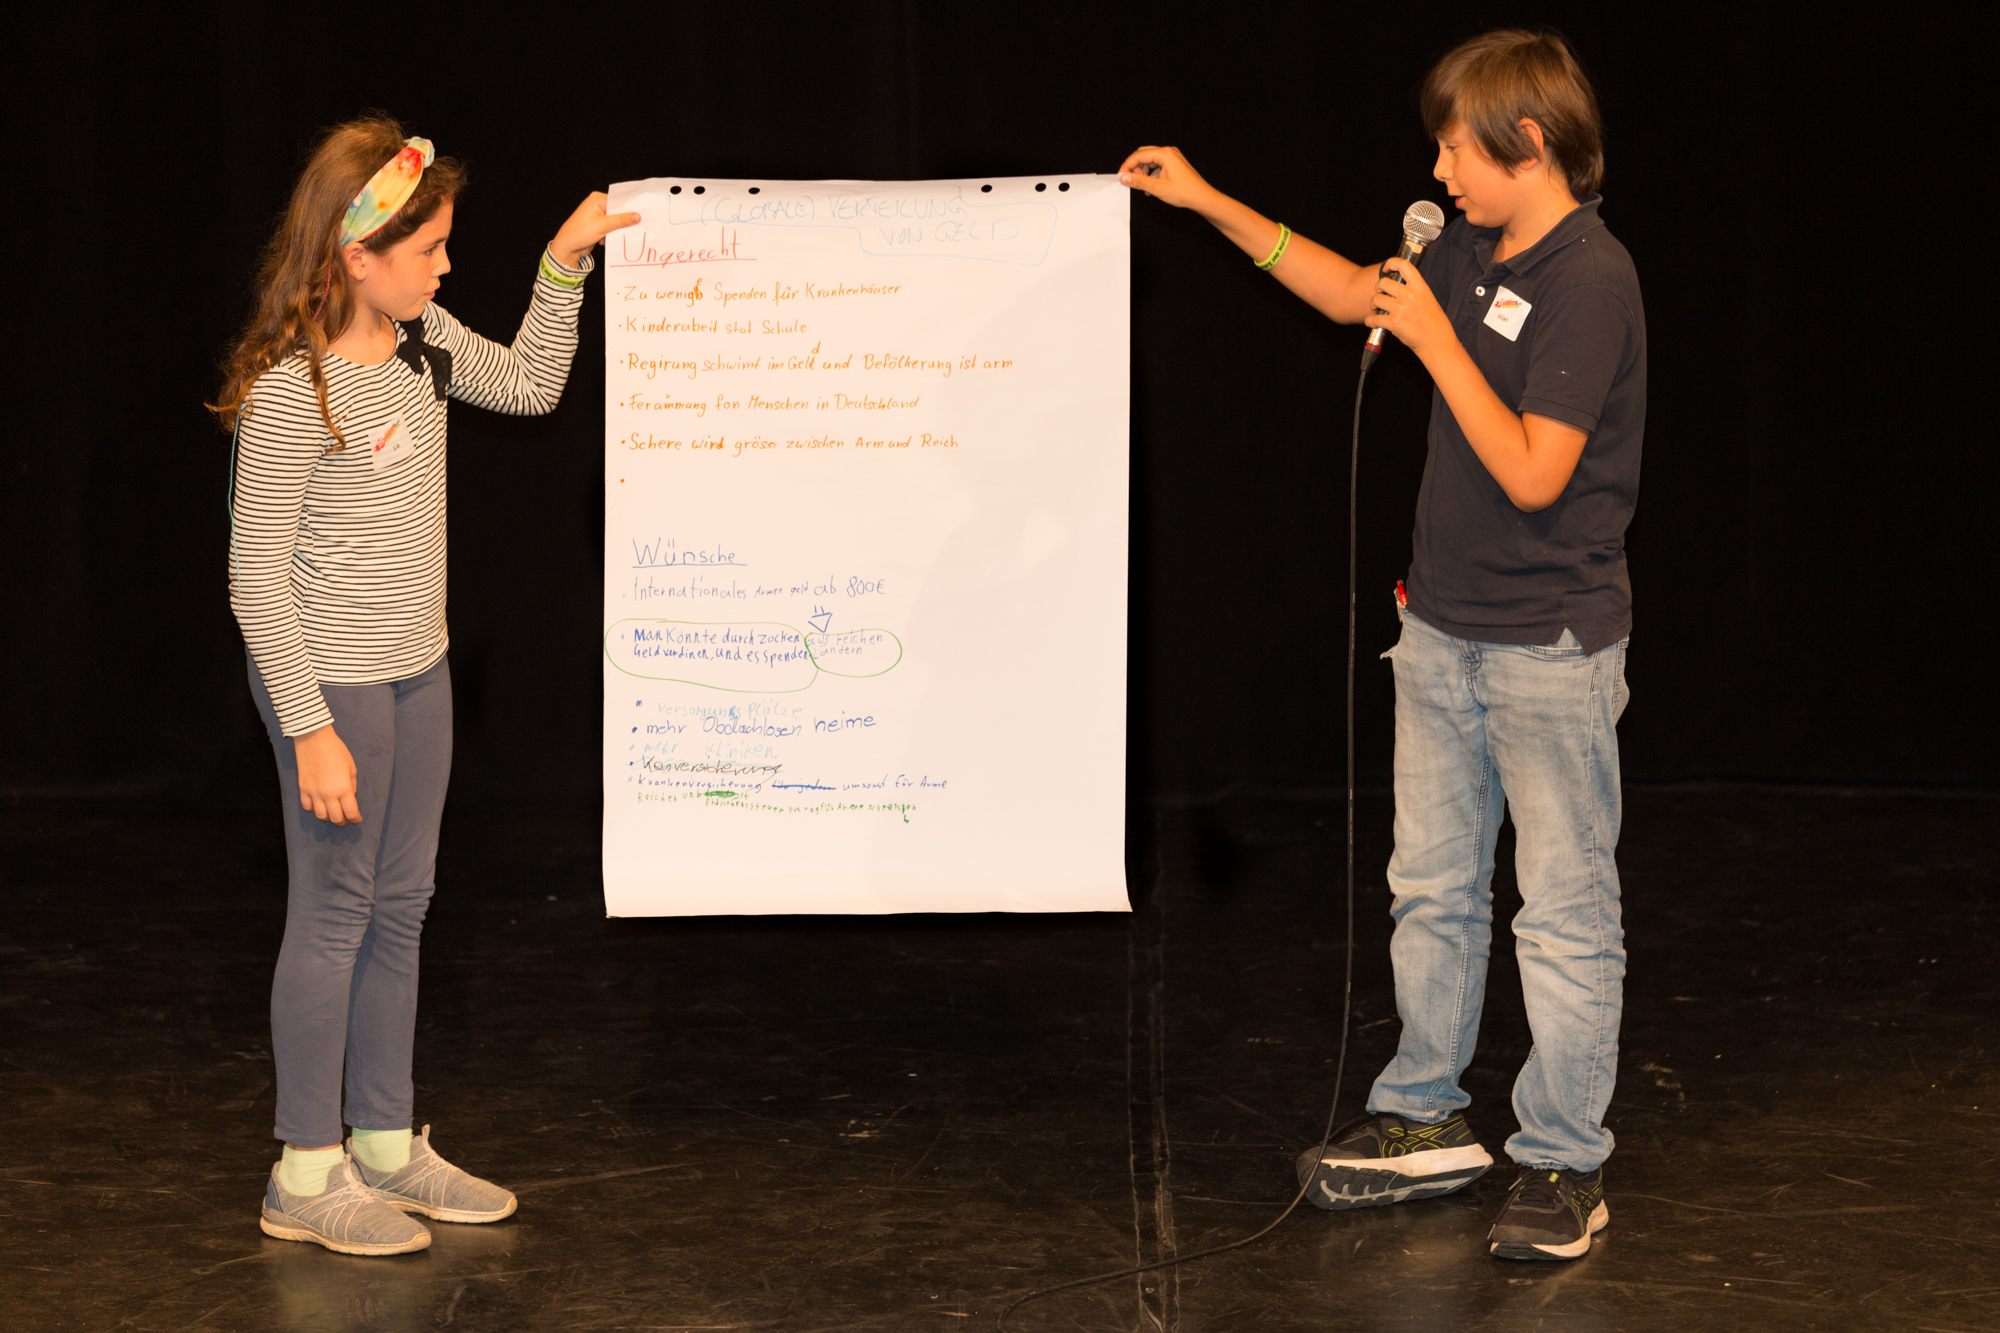 (GLOBALE) VERTEILUNG
VON GELD
Ungerecht
· Zu wenige Spenden für Krankenhäuser
· Kinderabeit stat Schule
· Regirung schwimt im Geld und Befölkerung ist arm
· Ferammung fon Menschen in Deutschland
· Schere wird gröser zwischen Arm und Reich
·
Wünsche
· Internationales Armen geld ab 800€
· Man Könnte durch zocken
Geld verdinen, und es spenden
aus reichen
Ländern
• versorgungs plätze
• mehr Obdachlosen heime
• mehr Kliniken.
• Krankenversicherung für jeden umsonst für Arme
Reichen und